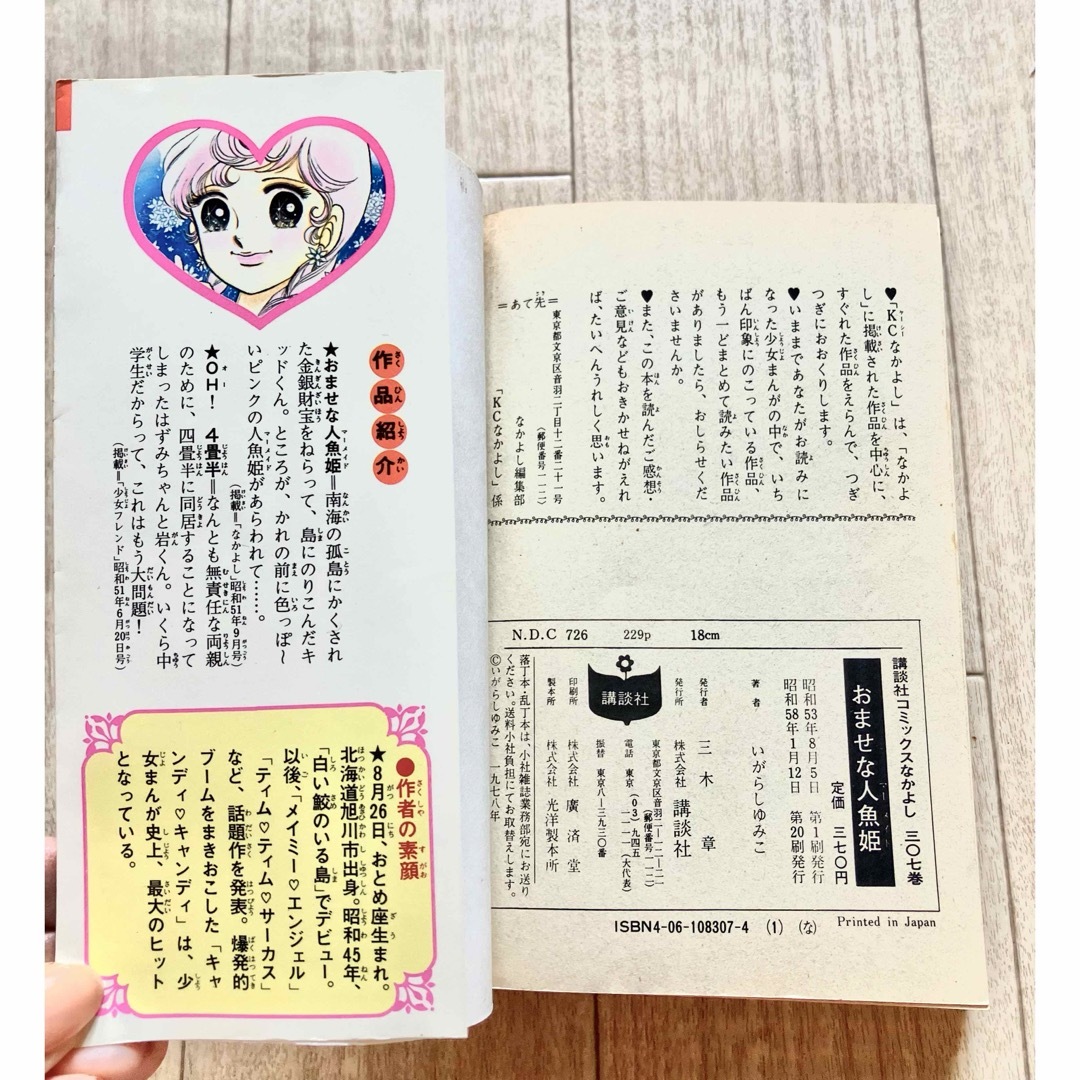 作品紹介
★おませな人魚姫=南海の孤島にかくされ
た金銀財宝をねらって、島にのりこんだキ
ッドくん。ところが、かれの前に色っぽ〜
いピンクの人魚姫があらわれて……。
(掲載=「なかよし」昭和51年9月号)
★OH! 4畳半=なんとも無責任な両親
のために、四畳半に同居することになって
しまったはずみちゃんと岩くん。いくら中
学生だからって、これはもう大問題!
(掲載=「少女フレンド」昭和51年6月20日号)
●作者の素顔
★8月26日、おとめ座生まれ。
北海道旭川市出身。昭和45年、
「白い鮫のいる島」でデビュー。
以後、「メイミー♡エンジェル」
「ティム♡ティム♡サーカス」
など、話題作を発表。爆発的
ブームをまきおこした「キャ
ンディ♡キャンディ」は、少
女まんが史上、最大のヒット
となっている。
♥「KCなかよし」は、「なかよ
し」に掲載された作品を中心に、
すぐれた作品をえらんで、つぎ
つぎにおおくりします。
♥いままであなたがお読みに
なった少女まんがの中で、いち
ばん印象にのこっている作品、
もう一どまとめて読みたい作品
がありましたら、おしらせくだ
さいませんか。
♥また、この本を読んだご感想・
ご意見などもおきかせねがえれ
ば、たいへんうれしく思います。
=あて先=
東京都文京区音羽二丁目十二番二十一号
(郵便番号一一二)
なかよし編集部
「KCなかよし」係
N.D.C 726 229p 18cm
講談社コミックスなかよし 三〇七巻
おませな人魚姫
昭和53年8月5日 第1刷発行
昭和58年1月12日 第20刷発行
定価 三七〇円
著者 いがらしゆみこ
発行者 三木 章
発行所 株式会社 講談社
東京都文京区音羽二-一二-二一
(郵便番号一一二)
電話 東京(03)九四五-
一一一一(大代表)
振替 東京八-三九三〇番
講談社
印刷所 株式会社 廣済堂
製本所 株式会社 光洋製本所
落丁本・乱丁本は、小社雑誌業務部宛にお送り
ください。送料小社負担にてお取替えします。
©いがらしゆみこ 一九七八年
ISBN4-06-108307-4 (1) (な)
Printed in Japan